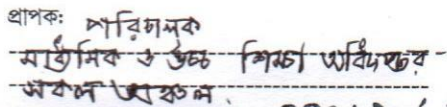 প্রাপক: পারিচালক
মাধ্যমিক ও উচ্চ শিক্ষা অধিদপ্তর
সকল অঞ্চল.